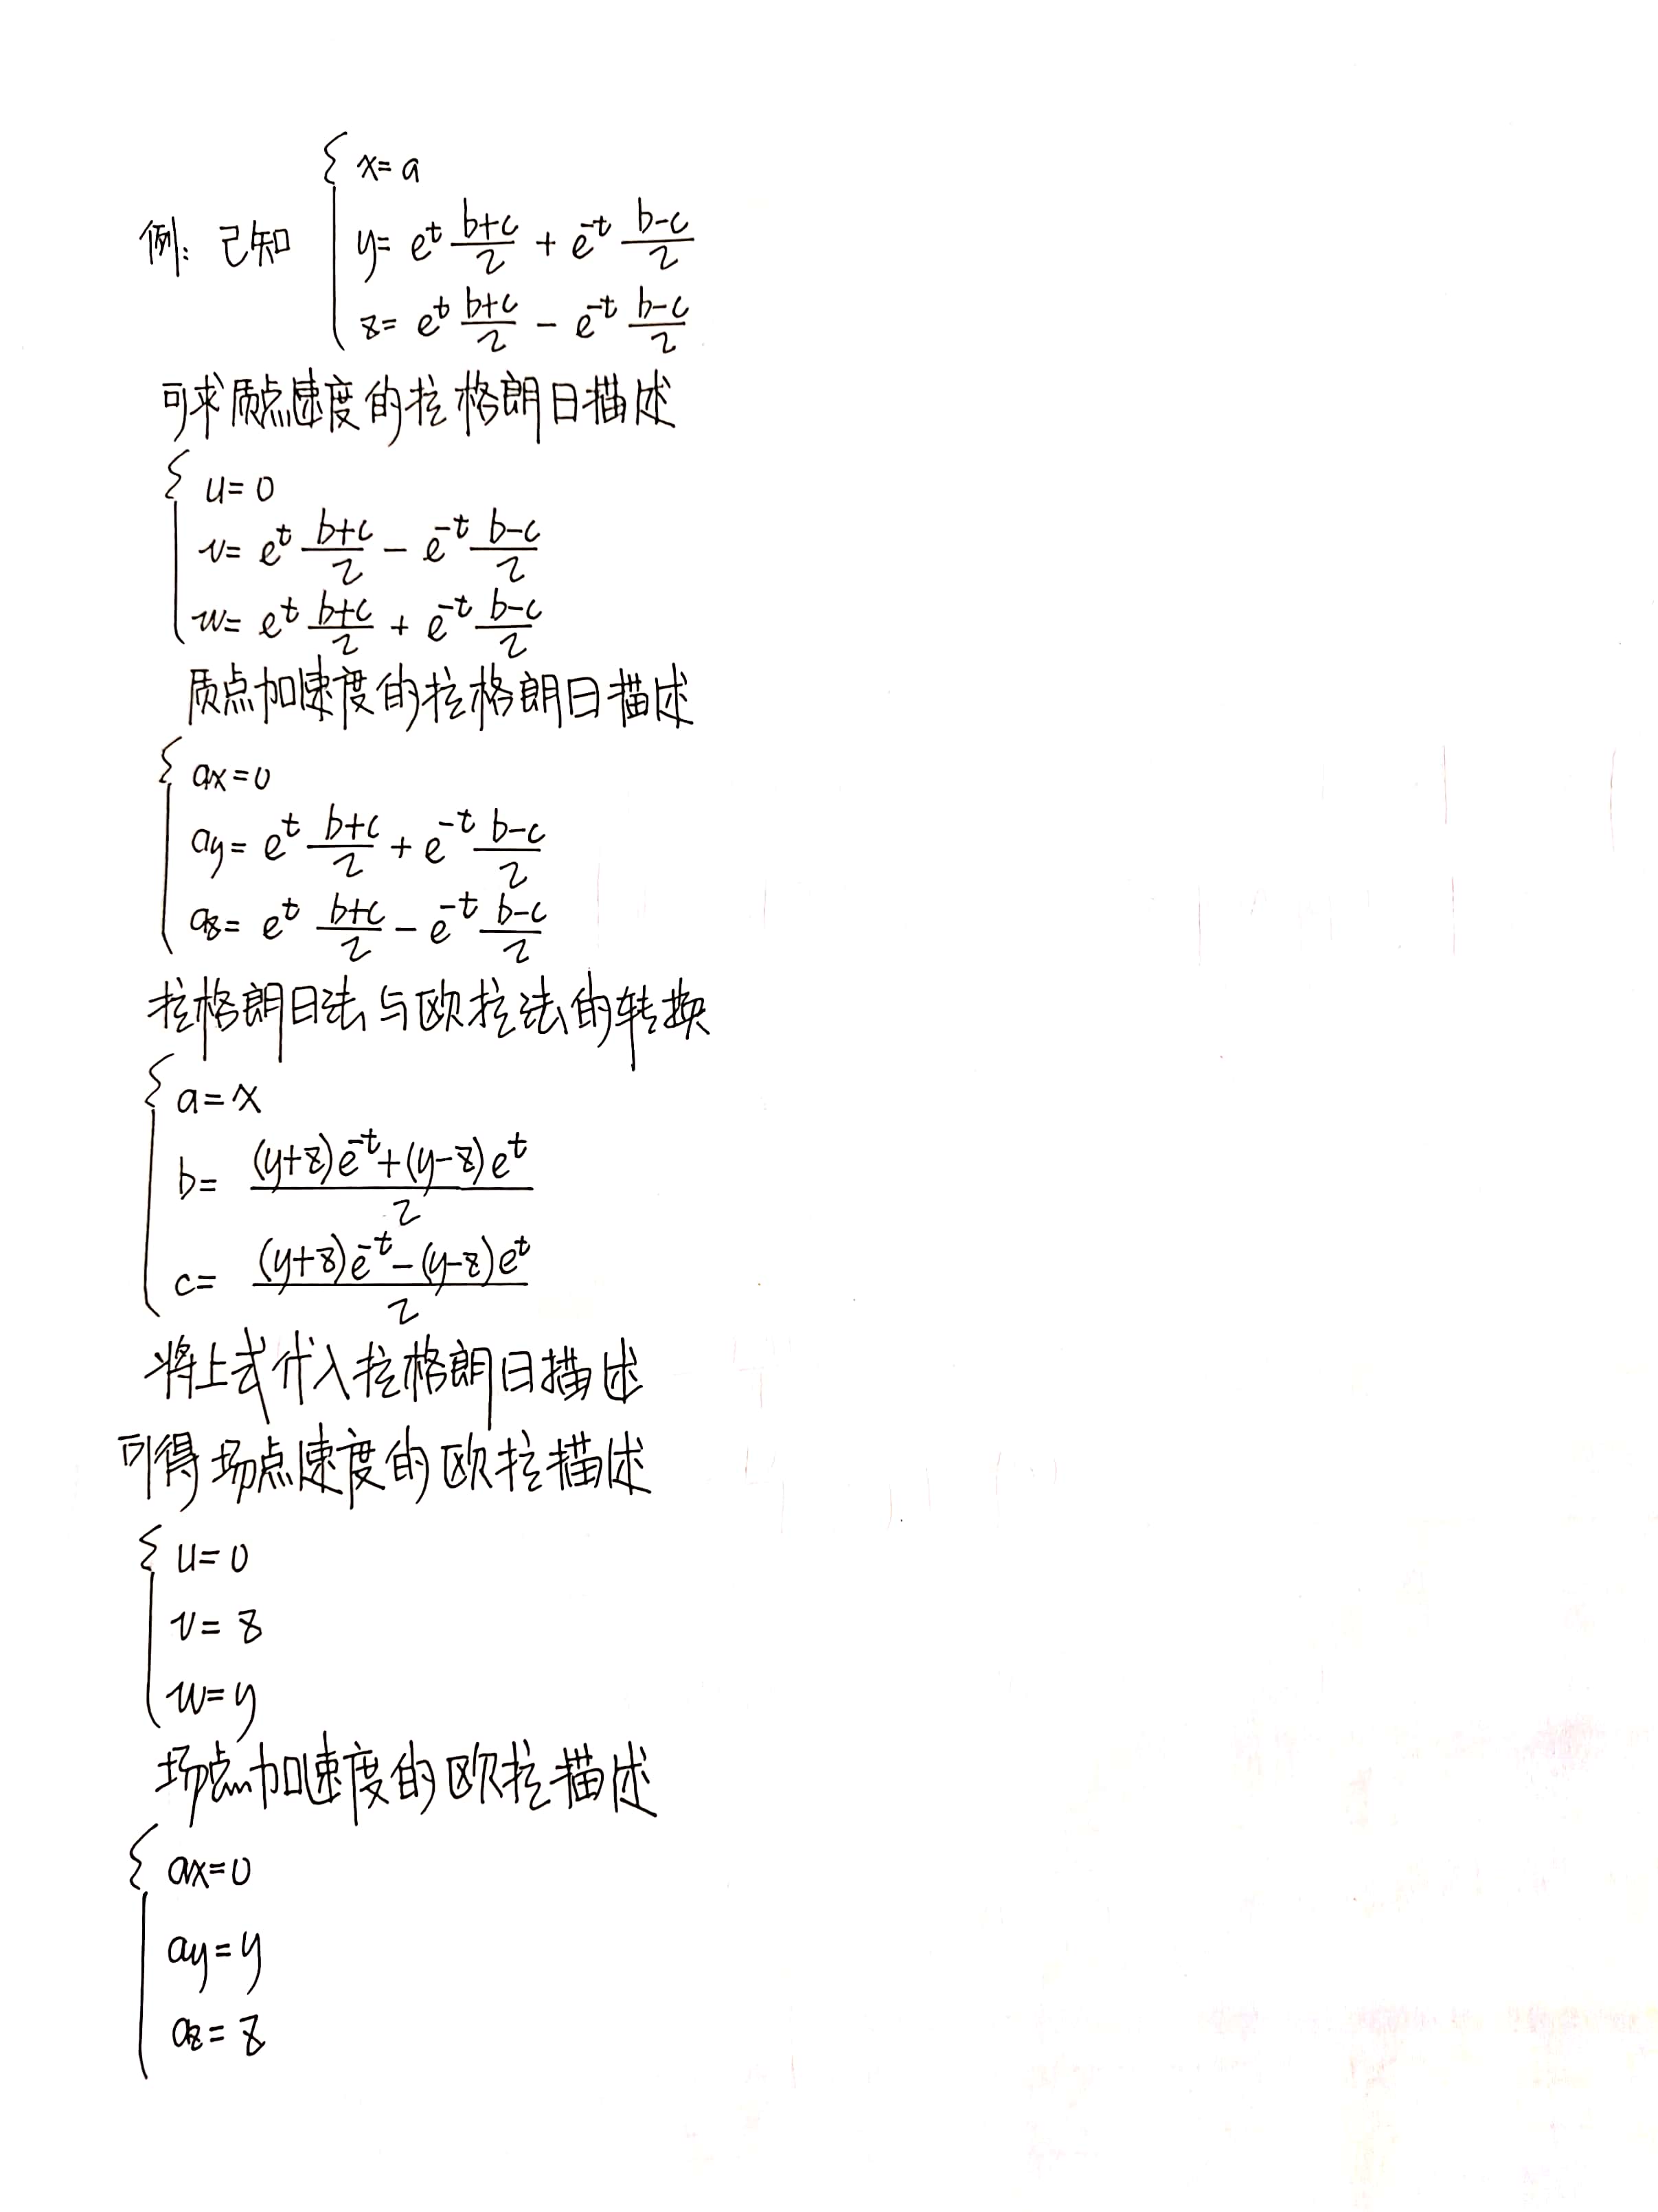 例: 已知 { x = a
y = e^t (b+c)/2 + e^-t (b-c)/2
z = e^t (b+c)/2 - e^-t (b-c)/2
可求质点速度的拉格朗日描述
{ u = 0
v = e^t (b+c)/2 - e^-t (b-c)/2
w = e^t (b+c)/2 + e^-t (b-c)/2
质点加速度的拉格朗日描述
{ ax = 0
ay = e^t (b+c)/2 + e^-t (b-c)/2
az = e^t (b+c)/2 - e^-t (b-c)/2
拉格朗日法与欧拉法的转换
{ a = x
b = ((y+z)e^-t + (y-z)e^t)/2
c = ((y+z)e^-t - (y-z)e^t)/2
将上式代入拉格朗日描述
可得场点速度的欧拉描述
{ u = 0
v = z
w = y
场点加速度的欧拉描述
{ ax = 0
ay = y
az = z